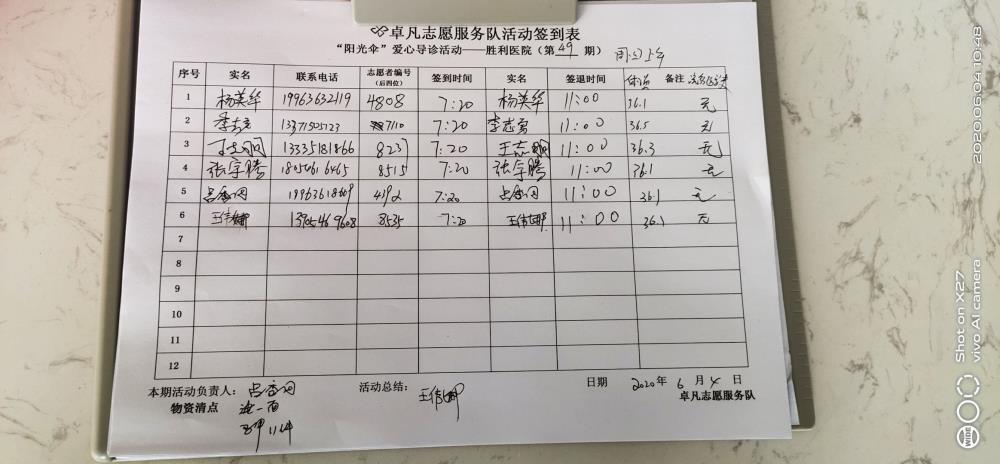 卓凡志愿服务队活动签到表
“阳光伞”爱心导诊活动——胜利医院（第49期） 周四上午
序号 实名 联系电话 志愿者编号（后四位） 签到时间 实名 签退时间 体温 备注
1 杨美华 19963632119 4808 7:20 杨美华 11:00 36.1 无
2 李志勇 13371505123 7110 7:20 李志勇 11:00 36.5 无
3 王志刚 13335181866 8237 7:20 王志刚 11:00 36.3 无
4 张宇腾 185054616465 8515 7:20 张宇腾 11:00 36.1 无
5 吕香阁 7:20 吕香阁 11:00 36.1 无
6 王伟娜 13705469608 8535 7:20 王伟娜 11:00 36.1 无
7
8
9
10
11
12
本期活动负责人：吕香阁 活动总结：王伟娜 日期 2020年6月4日
物资清点 卓凡志愿服务队
2020.06.04 10:48
Shot on X27
vivo AI camera